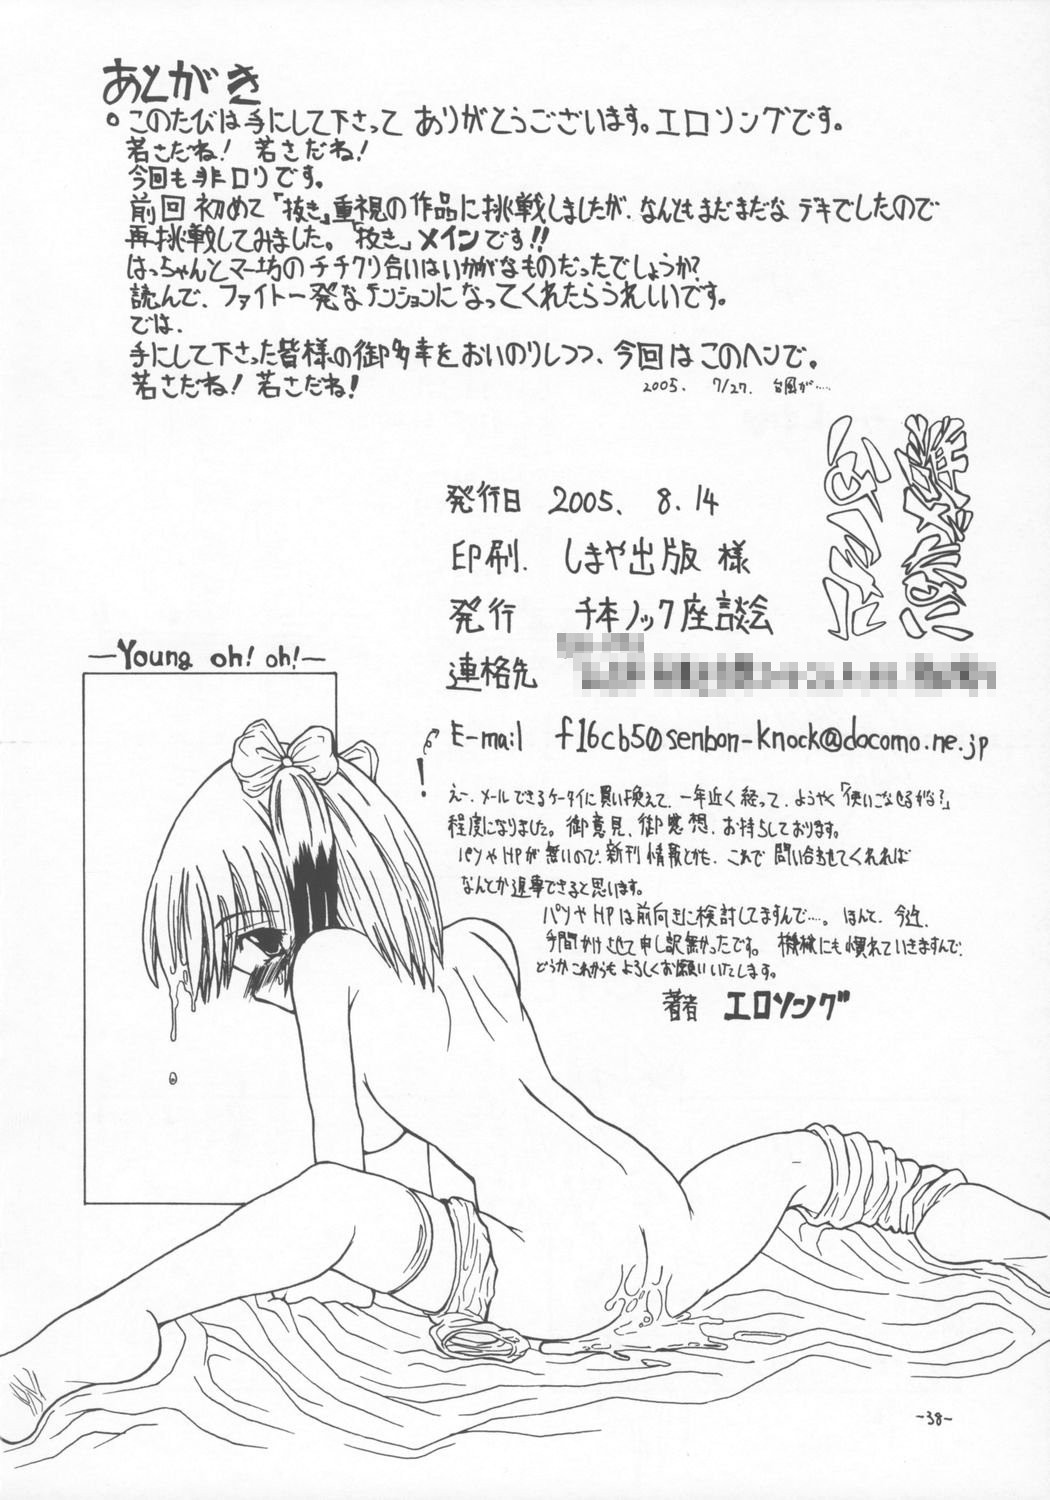 あとがき
。このたびは手にして下さって ありがとうございます。エロソングです。
若さだね! 若さだね!
今回も非ロリです。
前回 初めて「抜き」重視の作品に挑戦しましたが、なんともまだまだな デキでしたので
再挑戦してみました。「抜き」メインです!!
はっちゃんとマー坊のチチクリ合いはいかがなものだったでしょうか?
読んで、ファイト一発なテンションになってくれたらうれしいです。
では、
手にして下さった皆様の御多幸をおいのりしつつ、今回はこのヘンで。
若さだね! 若さだね!
2005. 7/27. 台風が……
発行日 2005. 8.14
印刷. しまや出版 様
発行 千本ノック座談会
連絡先
E-mail f16cb50senbon-knock@docomo.ne.jp
えー、メールできるケータイに買い換えて、一年近く経って、ようやく「使いこなせるかな?」
程度になりました。御意見、御感想、お待ちしております。
パソやHPが無いので、新刊情報とかも、これで問い合わせてくれれば
なんとか返事できると思います。
パソやHPは前向きに検討してますんで…。ほんと、今迄、
手間かけさせて申し訳無かったです。機械にも慣れていきますんで、
どうかこれからもよろしくお願いいたします。
著者 エロソング
—Young oh! oh!—
-38-